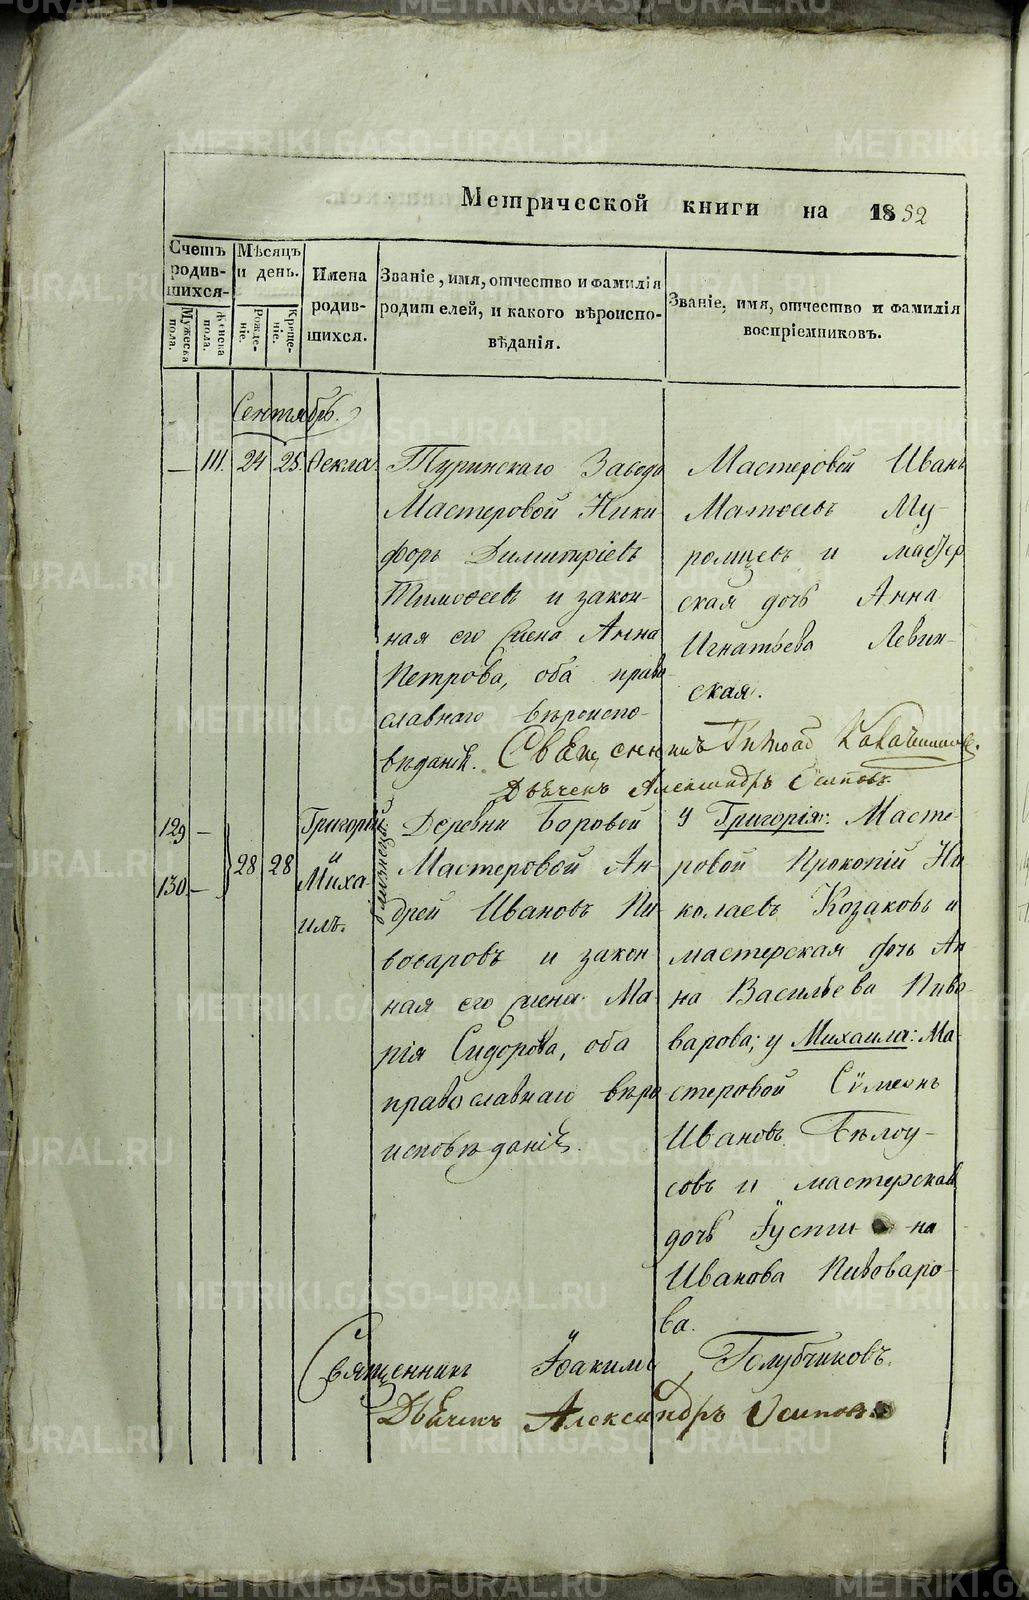 Метрической книги на 1852
Счетъ родив-шихся.
Мѣсяцъ и день.
Имена родив-шихся.
Званіе, имя, отчество и фамилія
родителей, и какого вѣроиспо-
вѣданія.
Званіе, имя, отчество и фамилія
воспріемниковъ.
Мужеска пола.
Женска пола.
Рожде-ніе.
Креще-ніе.
Сентябрь.
— 111. 24 25. Ѳекла.
Туринскаго Завода
Мастеровой Ники-
форъ Димитріевъ
Тимоѳеевъ и закон-
ная его жена Анна
Петрова, оба право-
славнаго вѣроиспо-
вѣданія.
Мастеровой Иванъ
Матѳеевъ Му-
ромцевъ и мастер
ская дочь Анна
Игнатьева Левин-
ская.
Священникъ
Дьячекъ Александръ Осиповъ.
129 —
130. —
28 28
Григорій
и
Миха-
илъ.
близнецы.
Деревни Боровой
Мастеровой Ан-
дрей Ивановъ Пи-
воваровъ и закон
ная его жена Ма
рія Сидорова, оба
православнаго вѣро
исповѣданія.
У Григорія: Масте-
ровой Прокопій Ни
колаевъ Козаковъ и
мастерская дочь Ан
на Васильева Пиво
варова; у Михаила: Ма-
стеровой Сѷмеонъ
Ивановъ Бѣлоу-
совъ и мастерская
дочь Іусти на
Иванова Пивоваро-
ва.
Священникъ Іоакимъ Голубчиковъ.
Дьячекъ Александръ Осиповъ.
METRIKI.GASO-URAL.RU